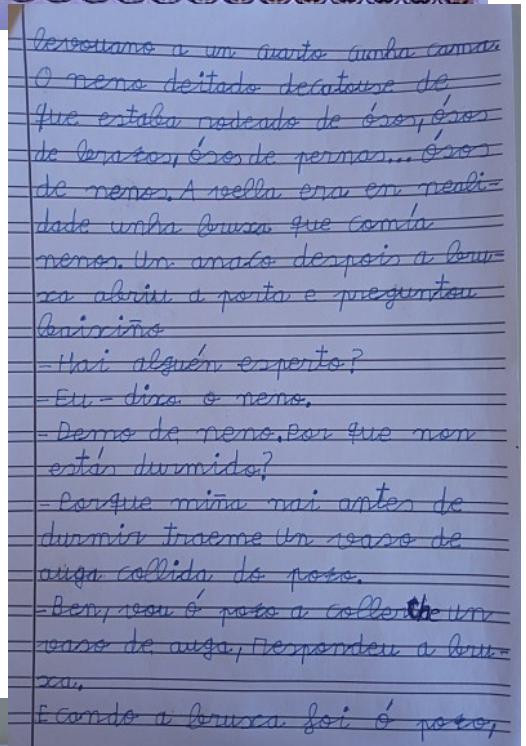 levouano a un cuarto cunha cama.
O neno deitado decatouse de
que estaba rodeado de ósos, ósos
de brazos, ósos de pernas... Ósos
de nenos. A vella era en reali-
dade unha bruxa que comía
nenos. Un anaco despois a bru-
xa abriu a porta e preguntou
baixiño
-Hai alguén esperto?
-Eu - dixo o neno.
-Demo de neno. Por que non
estás durmido?
-Porque miña nai antes de
durmir traeme un vaso de
auga collida do pozo.
-Ben, vou ó pozo a collerche un
vaso de auga, respondeu a bru-
xa.
E cando a bruxa foi ó pozo,